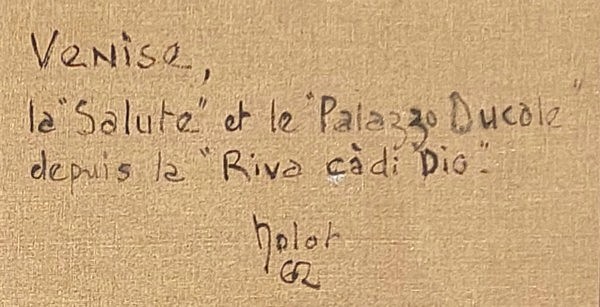 Venise,
la "Salute" et le "Palazzo Ducale"
depuis la "Riva cà di Dio".
Nolot
62